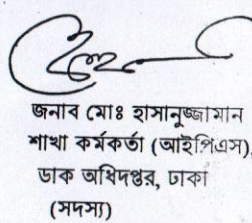 জনাব মোঃ হাসানুজ্জামান
শাখা কর্মকর্তা (আইপিএস),
ডাক অধিদপ্তর, ঢাকা
(সদস্য)